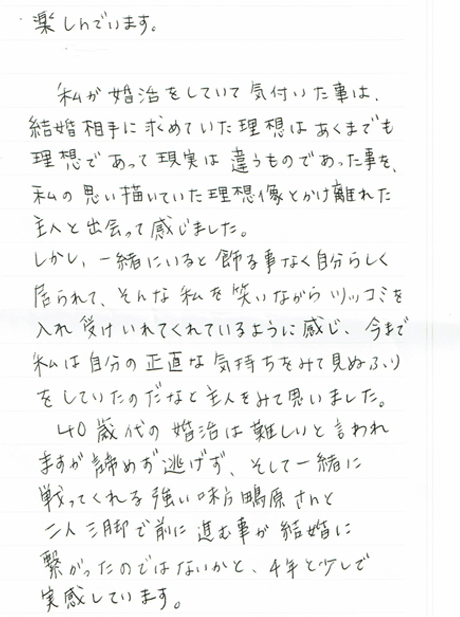 楽しんでいます。
私が婚活をしていて気付いた事は、
結婚相手に求めていた理想はあくまでも
理想であって現実は違うものであった事を、
私の思い描いていた理想像とかけ離れた
主人と出会って感じました。
しかし、一緒にいると飾る事なく自分らしく
居られて、そんな私を笑いながらツッコミを
入れ受けいれてくれているように感じ、今まで
私は自分の正直な気持ちをみて見ぬふり
をしていたのだなと主人をみて思いました。
40歳代の婚活は難しいと言われ
ますが諦めず逃げず、そして一緒に
戦ってくれる強い味方鴫原さんと
二人三脚で前に進む事が結婚に
繋がったのではないかと、4年と少しで
実感しています。